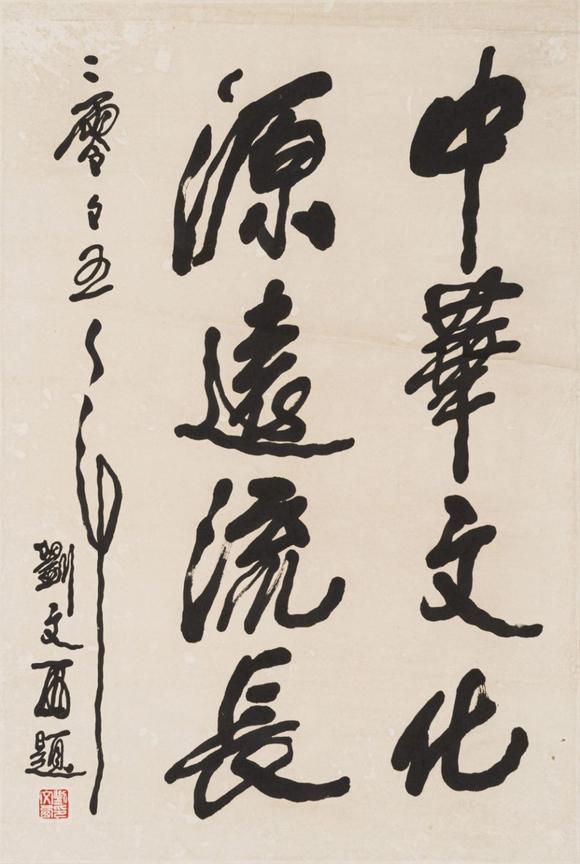 中華文化
源遠流長
二零零五年
劉文西題